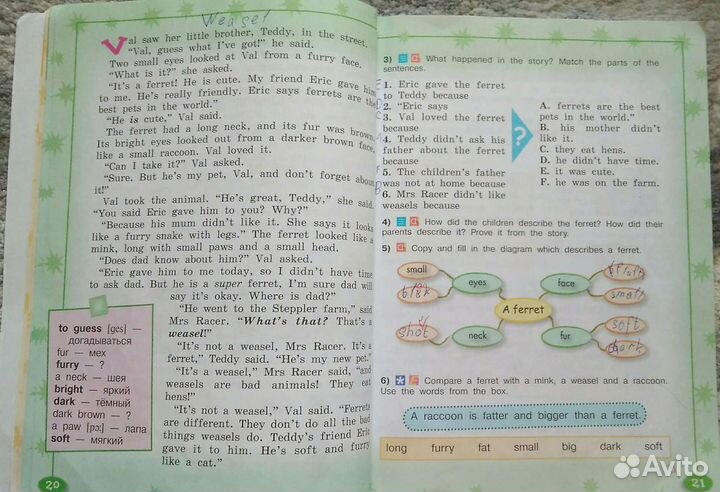 Weasel
Val saw her little brother, Teddy, in the street.
"Val, guess what I've got!" he said.
Two small eyes looked at Val from a furry face.
"What is it?" she asked.
"It's a ferret! He is cute. My friend Eric gave him
to me. He's really friendly. Eric says ferrets are the
best pets in the world."
"He is cute," Val said.
The ferret had a long neck, and its fur was brown.
Its bright eyes looked out from a darker brown face,
like a small raccoon. Val loved it.
"Can I take it?" Val asked.
"Sure. But he's my pet, Val, and don't forget about
it!"
Val took the animal. "He's great, Teddy," she said.
"You said Eric gave him to you? Why?"
"Because his mum didn't like it. She says it looks
like a furry snake with legs." The ferret looked like a
mink, long with small paws and a small head.
"Does dad know about him?" Val asked.
"Eric gave him to me today, so I didn't have time
to ask dad. But he is a super ferret, I'm sure dad will
say it's okay. Where is dad?"
"He went to the Steppler farm," said
Mrs Racer. "What's that? That's a
weasel!"
"It's not a weasel, Mrs Racer. It's a
ferret," Teddy said. "He's my new pet."
"It's a weasel," Mrs Racer said, "and
weasels are bad animals! They eat
hens!"
"It's not a weasel," Val said. "Ferrets
are different. They don't do all the bad
things weasels do. Teddy's friend Eric
gave it to him. He's soft and furry
like a cat."
to guess [ges] —
догадываться
fur — мех
furry — ?
a neck — шея
bright — яркий
dark — тёмный
dark brown — ?
a paw [pɔː] — лапа
soft — мягкий
20
3) What happened in the story? Match the parts of the
sentences.
1. Eric gave the ferret
to Teddy because
2. "Eric says
3. Val loved the ferret
because
4. Teddy didn't ask his
father about the ferret
because
5. The children's father
was not at home because
6. Mrs Racer didn't like
weasels because
?
A. ferrets are the best
pets in the world."
B. his mother didn't
like it.
C. they eat hens.
D. he didn't have time.
E. it was cute.
F. he was on the farm.
4) How did the children describe the ferret? How did their
parents describe it? Prove it from the story.
5) Copy and fill in the diagram which describes a ferret.
small
eyes
face
small
A ferret
neck
fur
soft
dark
6) Compare a ferret with a mink, a weasel and a raccoon.
Use the words from the box.
A raccoon is fatter and bigger than a ferret.
long furry fat small big dark soft
21
Avito